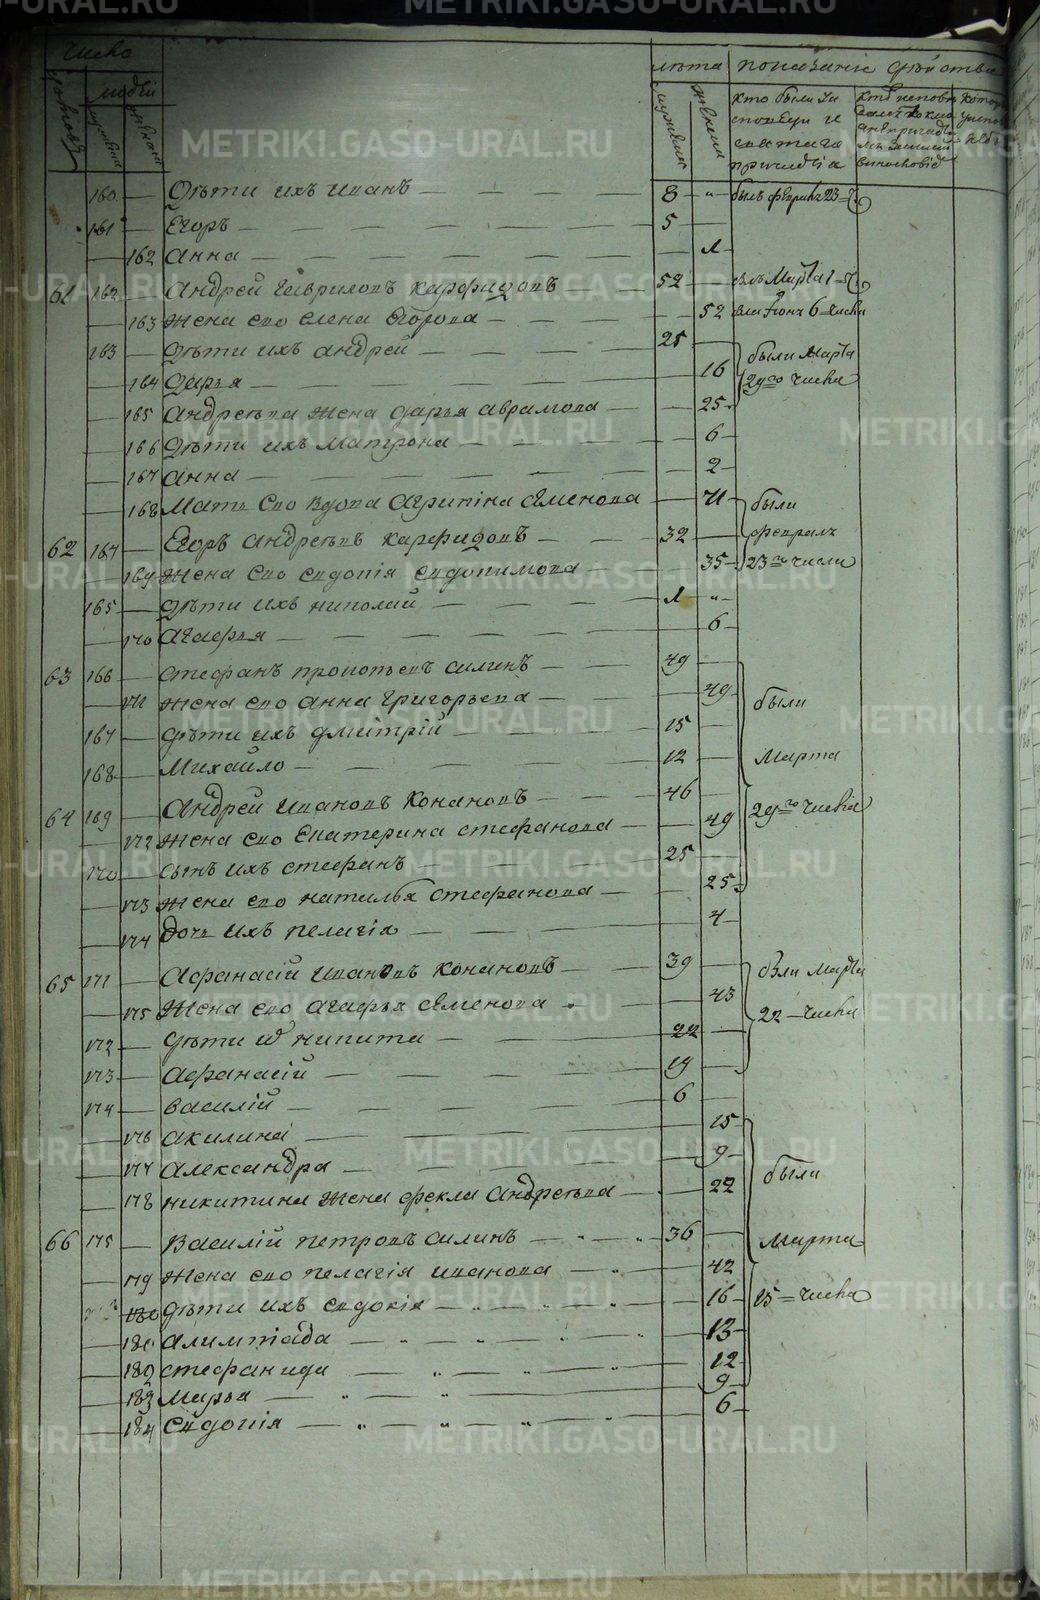 число
лѣта показаніе дѣйства
дворовъ
людей
мужеска
женска
мужеска
женска
кто были у и
споведи и
святаго
причастія
160 — Дѣти ихъ иванъ — 8 — „ — былъ февраля 23 — ч
161 — Егоръ — 5 —
— 162 анна — 1 —
61 162 — Андрей Гавриловъ Карфидовъ — 52 — былъ Марта 1 — ч
— 163 жена его елена Егорова — 52 была Іюня 6 — числа
163 — дѣти ихъ андрей — 25 —
были Марта
— 164 дарья — 16
29го числа
— 165 андреева жена дарья аврамова — 25
— 166 дѣти ихъ матрона — 6
— 167 анна — 2
— 168 Мать его вдова Агрипіна Семенова — 71
были
62 164 — Егоръ Андреевъ Карфидовъ — 32 —
февраля
— 169 жена его евдокія евдокимова — 35
23го числа
165 — дѣти ихъ николай — 1 — „ —
— 170 агафья — 6
63 166 — стефанъ прокопьевъ силинъ — 49 —
— 171 жена его анна григорьева — 49
были
167 — дѣти ихъ дмитрій — 15 —
168 — Михайло — 12 —
Марта
64 169 — Андрей ивановъ Конановъ — 46 —
29го числа
— 172 жена его екатерина стефанова — 49
170 — сынъ ихъ стефанъ — 25
— 173 жена его наталья стефанова — 25
— 174 дочь ихъ пелагія — 4
65 171 — Афанасій ивановъ конановъ — 39 —
были марта
— 175 жена его агафья Семенова — 43
22 — числа
172 — дѣти ихъ никита — 22 —
173 — афанасій — 19 —
174 — василій — 6 —
— 176 акилина — 15
— 177 александра — 9
были
— 178 никитина жена фекла андреева — 22
66 175 — Василій петровъ силинъ — 36 —
Марта
— 179 жена его пелагія иванова — 42
— 180 дѣти ихъ евдокія — 16
15 — числа
— 181 алимпіада — 13
— 182 стефанида — 12
— 183 марья — 9
— 184 Евдокія — 6